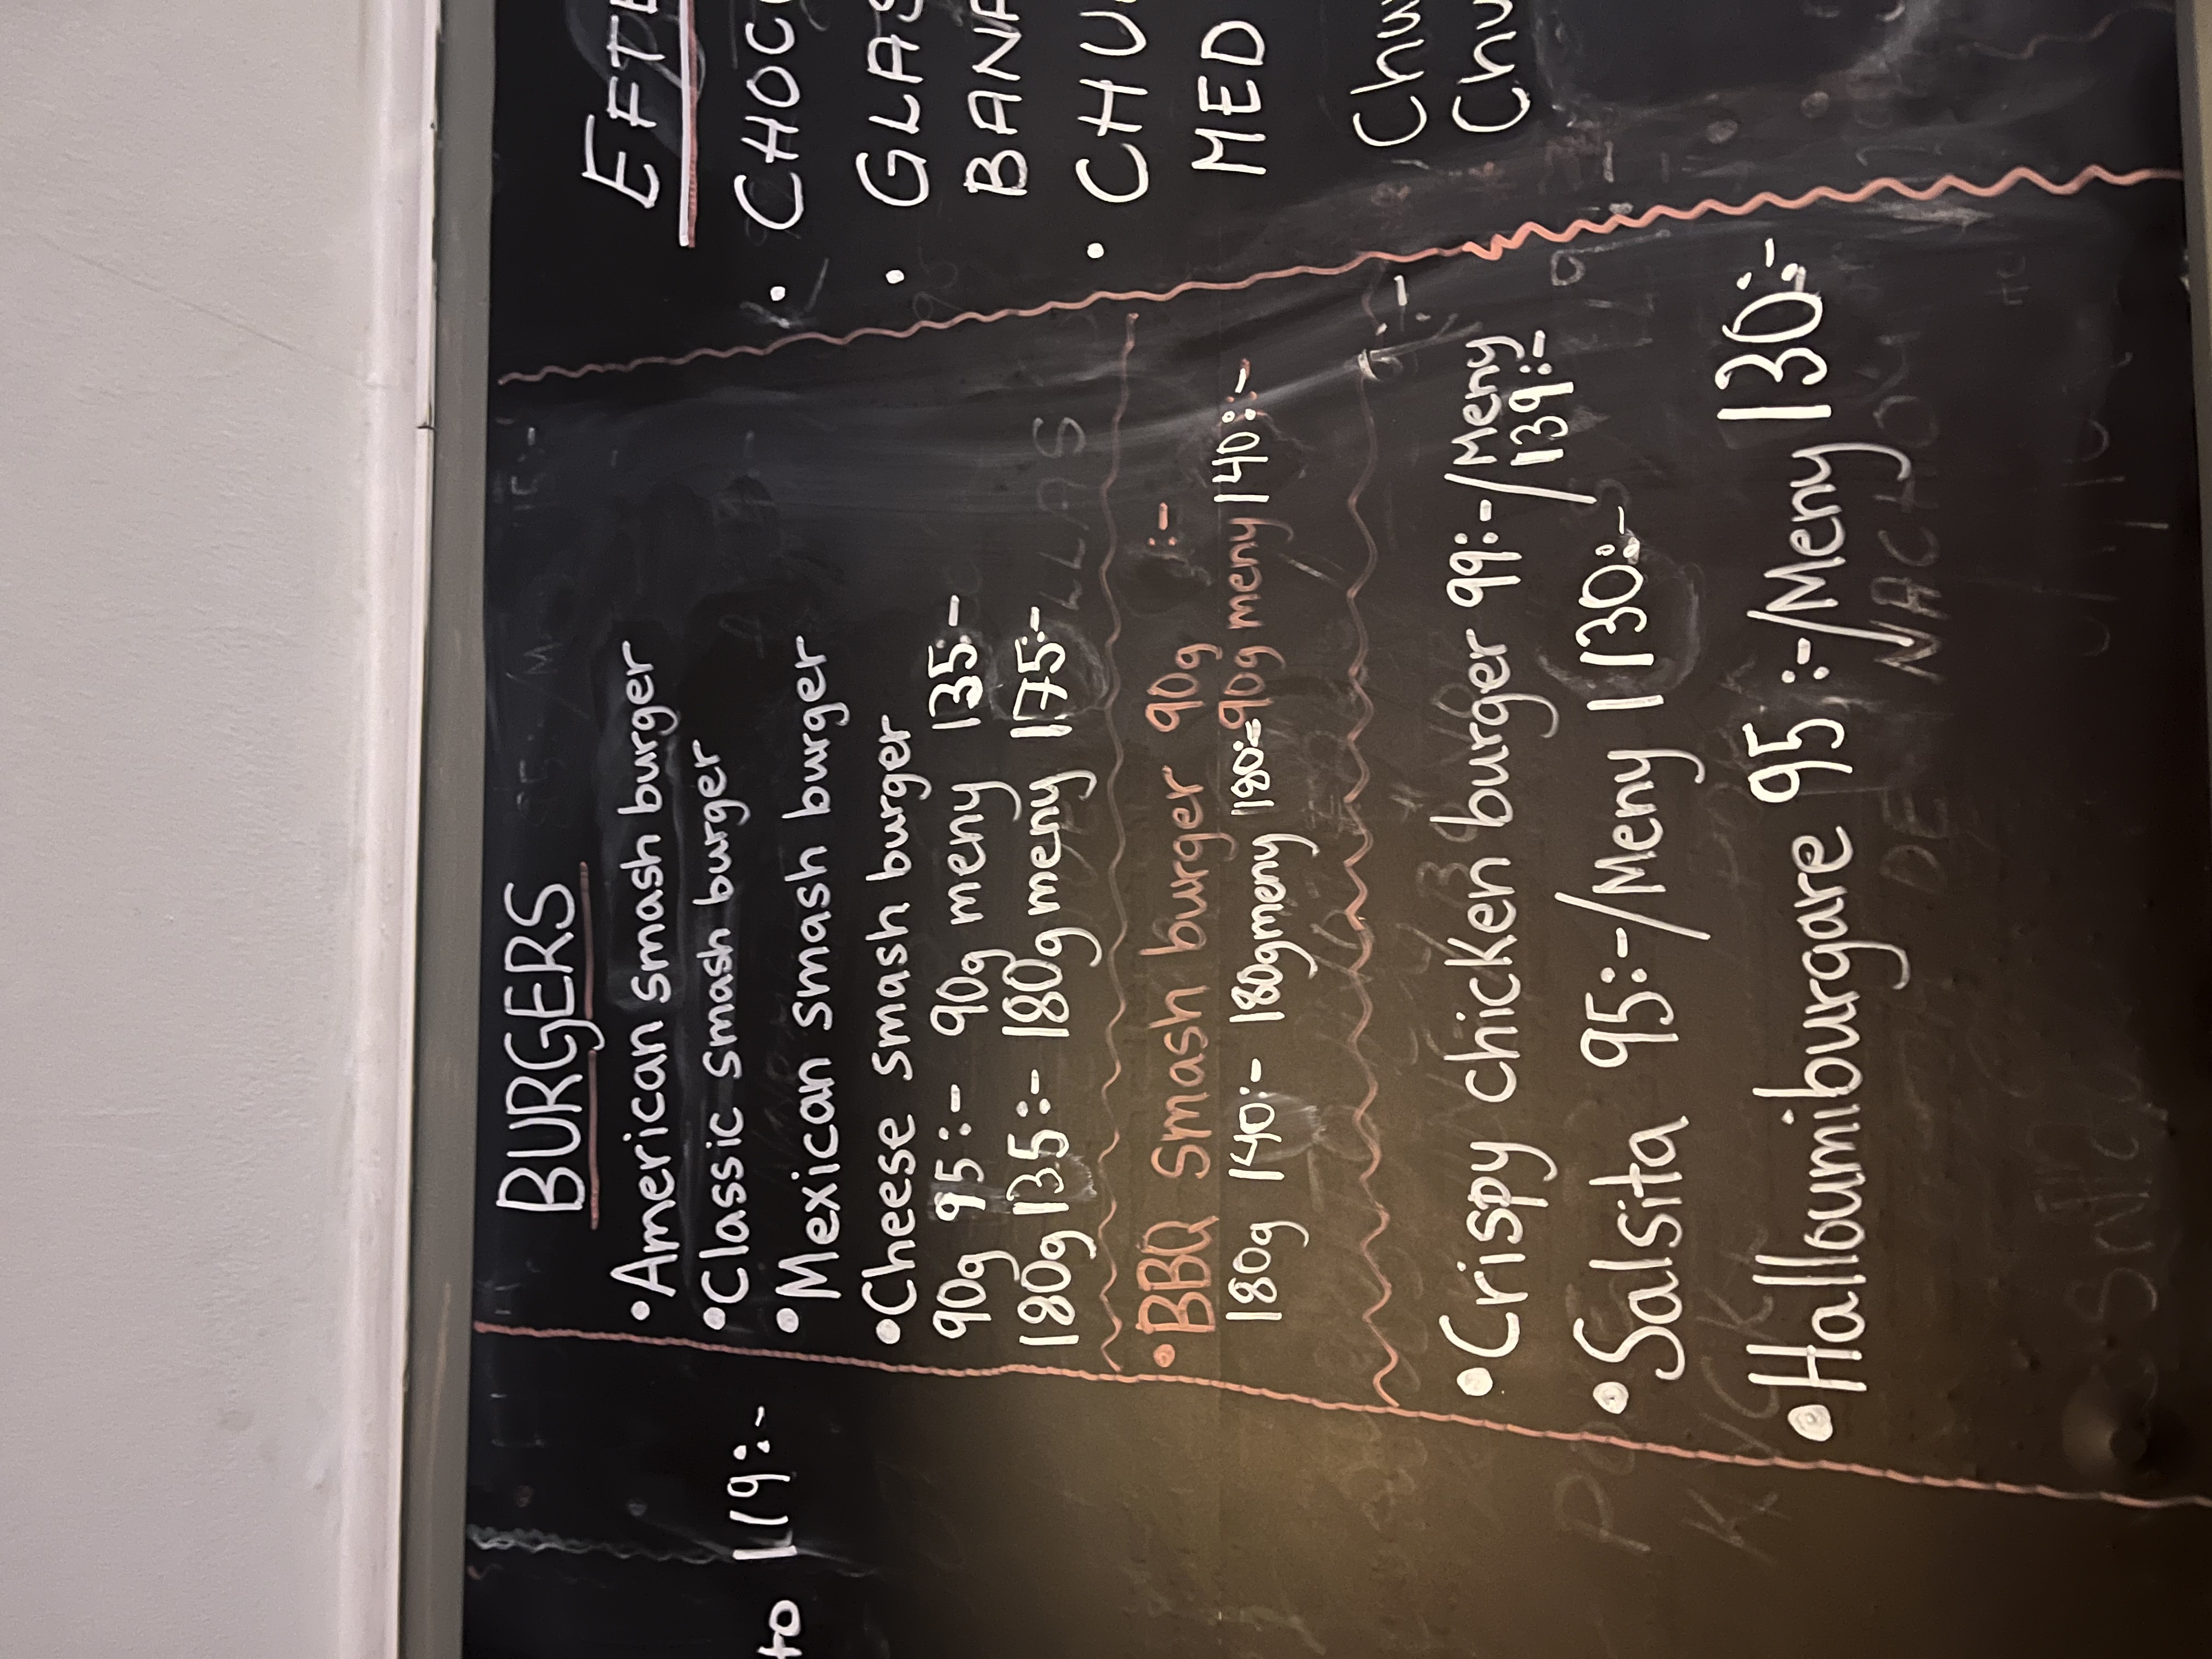 BURGERS
• American smash burger
• Classic smash burger
• Mexican smash burger
• Cheese smash burger
90g 95:- 90g meny 135:-
180g 135:- 180g meny 175:-
• BBQ Smash burger 90g :-
180g 140:- 180g meny 180:- 90g meny 140:-
• Crispy chicken burger 99:-/Meny
/139:-
• Salsita 95:-/Meny 130:-
• Halloumiburgare 95:-/Meny 130:-
119:-
• CHOC
• GLAS
BANA
• CHU
MED